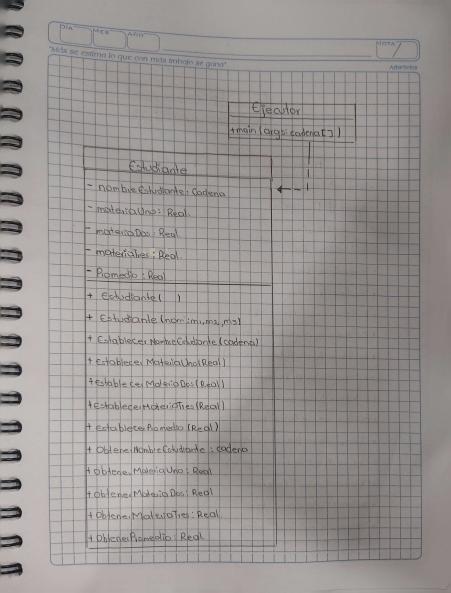 DÍA
MES
AÑO
NOTA
"Más se estima lo que con más trabajo se gana"
Ejecutor
+main(args: cadena[])
Estudiante
- nombreEstudiante: Cadena
- materiaUno: Real
- materiaDos: Real
- materiaTres: Real
- Promedio: Real
+ Estudiante( )
+ Estudiante(nom,m1,m2,m3)
+ EstablecerNombreEstudiante(cadena)
+ Establecer MateriaUno(Real)
+establecer MateriaDos(Real)
+establecerMateriaTres(Real)
+ establecerPromedio(Real)
+ ObtenerNombreEstudiante: cadena
+ obtener MateriaUno: Real
+ obtenerMateriaDos: Real
+ ObtenerMateriaTres: Real
+ ObtenerPromedio: Real